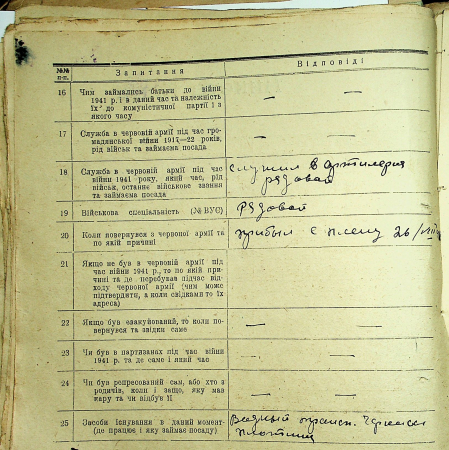 №№ п-п. Запитання Відповіді
16 Чим займались батьки до війни
1941 р. і в даний час та належність
їх до комуністичної партії і з
якого часу — —
17 Служба в червоній армії під час гро-
мадянської війни 1917—22 років,
рід військ та займаєма посада — —
18 Служба в червоній армії під час
війни 1941 року, який час, рід
військ, останнє військове звання
та займаєма посада
служил в артилерия
рядовой
19 Військова спеціяльність (№ ВУС) рядовой
20 Коли повернувся з червоної армії та
по якій причині
прибыл с плену 26/VIII
21 Якщо не був в червоній армії під
час війни 1941 р., то по якій при-
чині та де перебував підчас від-
ходу червоної армії (чим може
підтвердити, а коли свідками то їх
адреса)
22 Якщо був евакуйований, то коли по-
вернувся та звідки саме — —
23 Чи був в партизанах під час війни
1941 р. та де саме і який час — —
24 Чи був репресований сам, або хто з
родичів, коли і защо, яку мав
кару та чи відбув її — —
25 Засоби існування в даний момент-
(де працює і яку займає посаду)
Водный
плотник